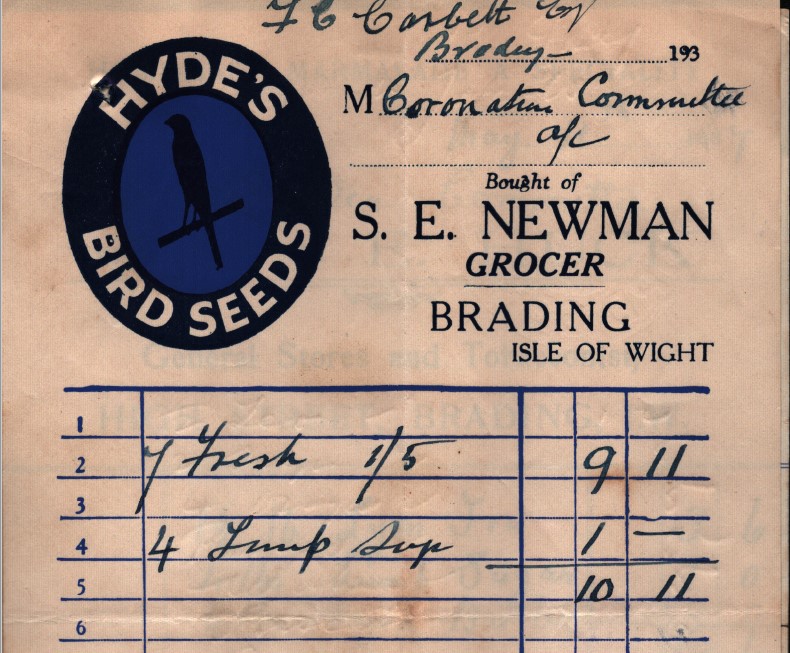 F C Corbett Esq
Brading 193
M Coronation Committee
a/c
Bought of
S. E. NEWMAN
GROCER
BRADING
ISLE OF WIGHT
HYDE'S
BIRD SEEDS
1
2 7 Fresh 1/5 9 11
3
4 4 Lump Sug 1 —
5 10 11
6